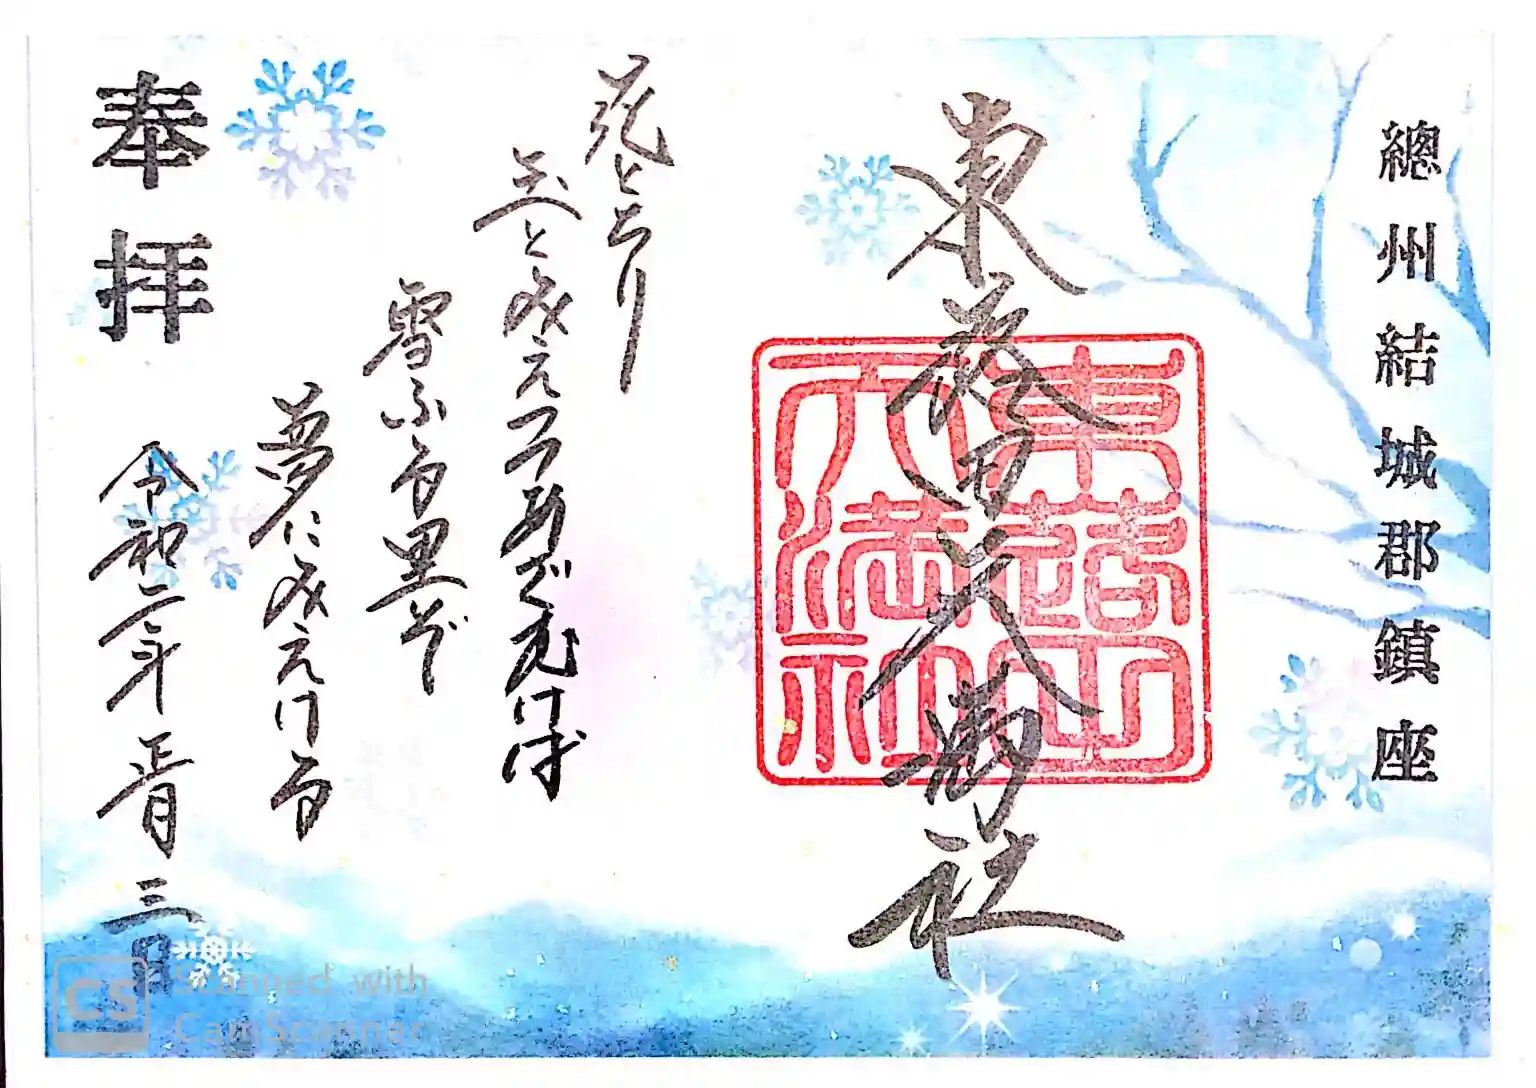 總州結城郡鎮座
東蕗田天満社
花とちり
玉とみえつつあざむけば
雪ふる里ぞ
夢にみえける
奉拝
令和二年正月三日
CS Scanned with
CamScanner